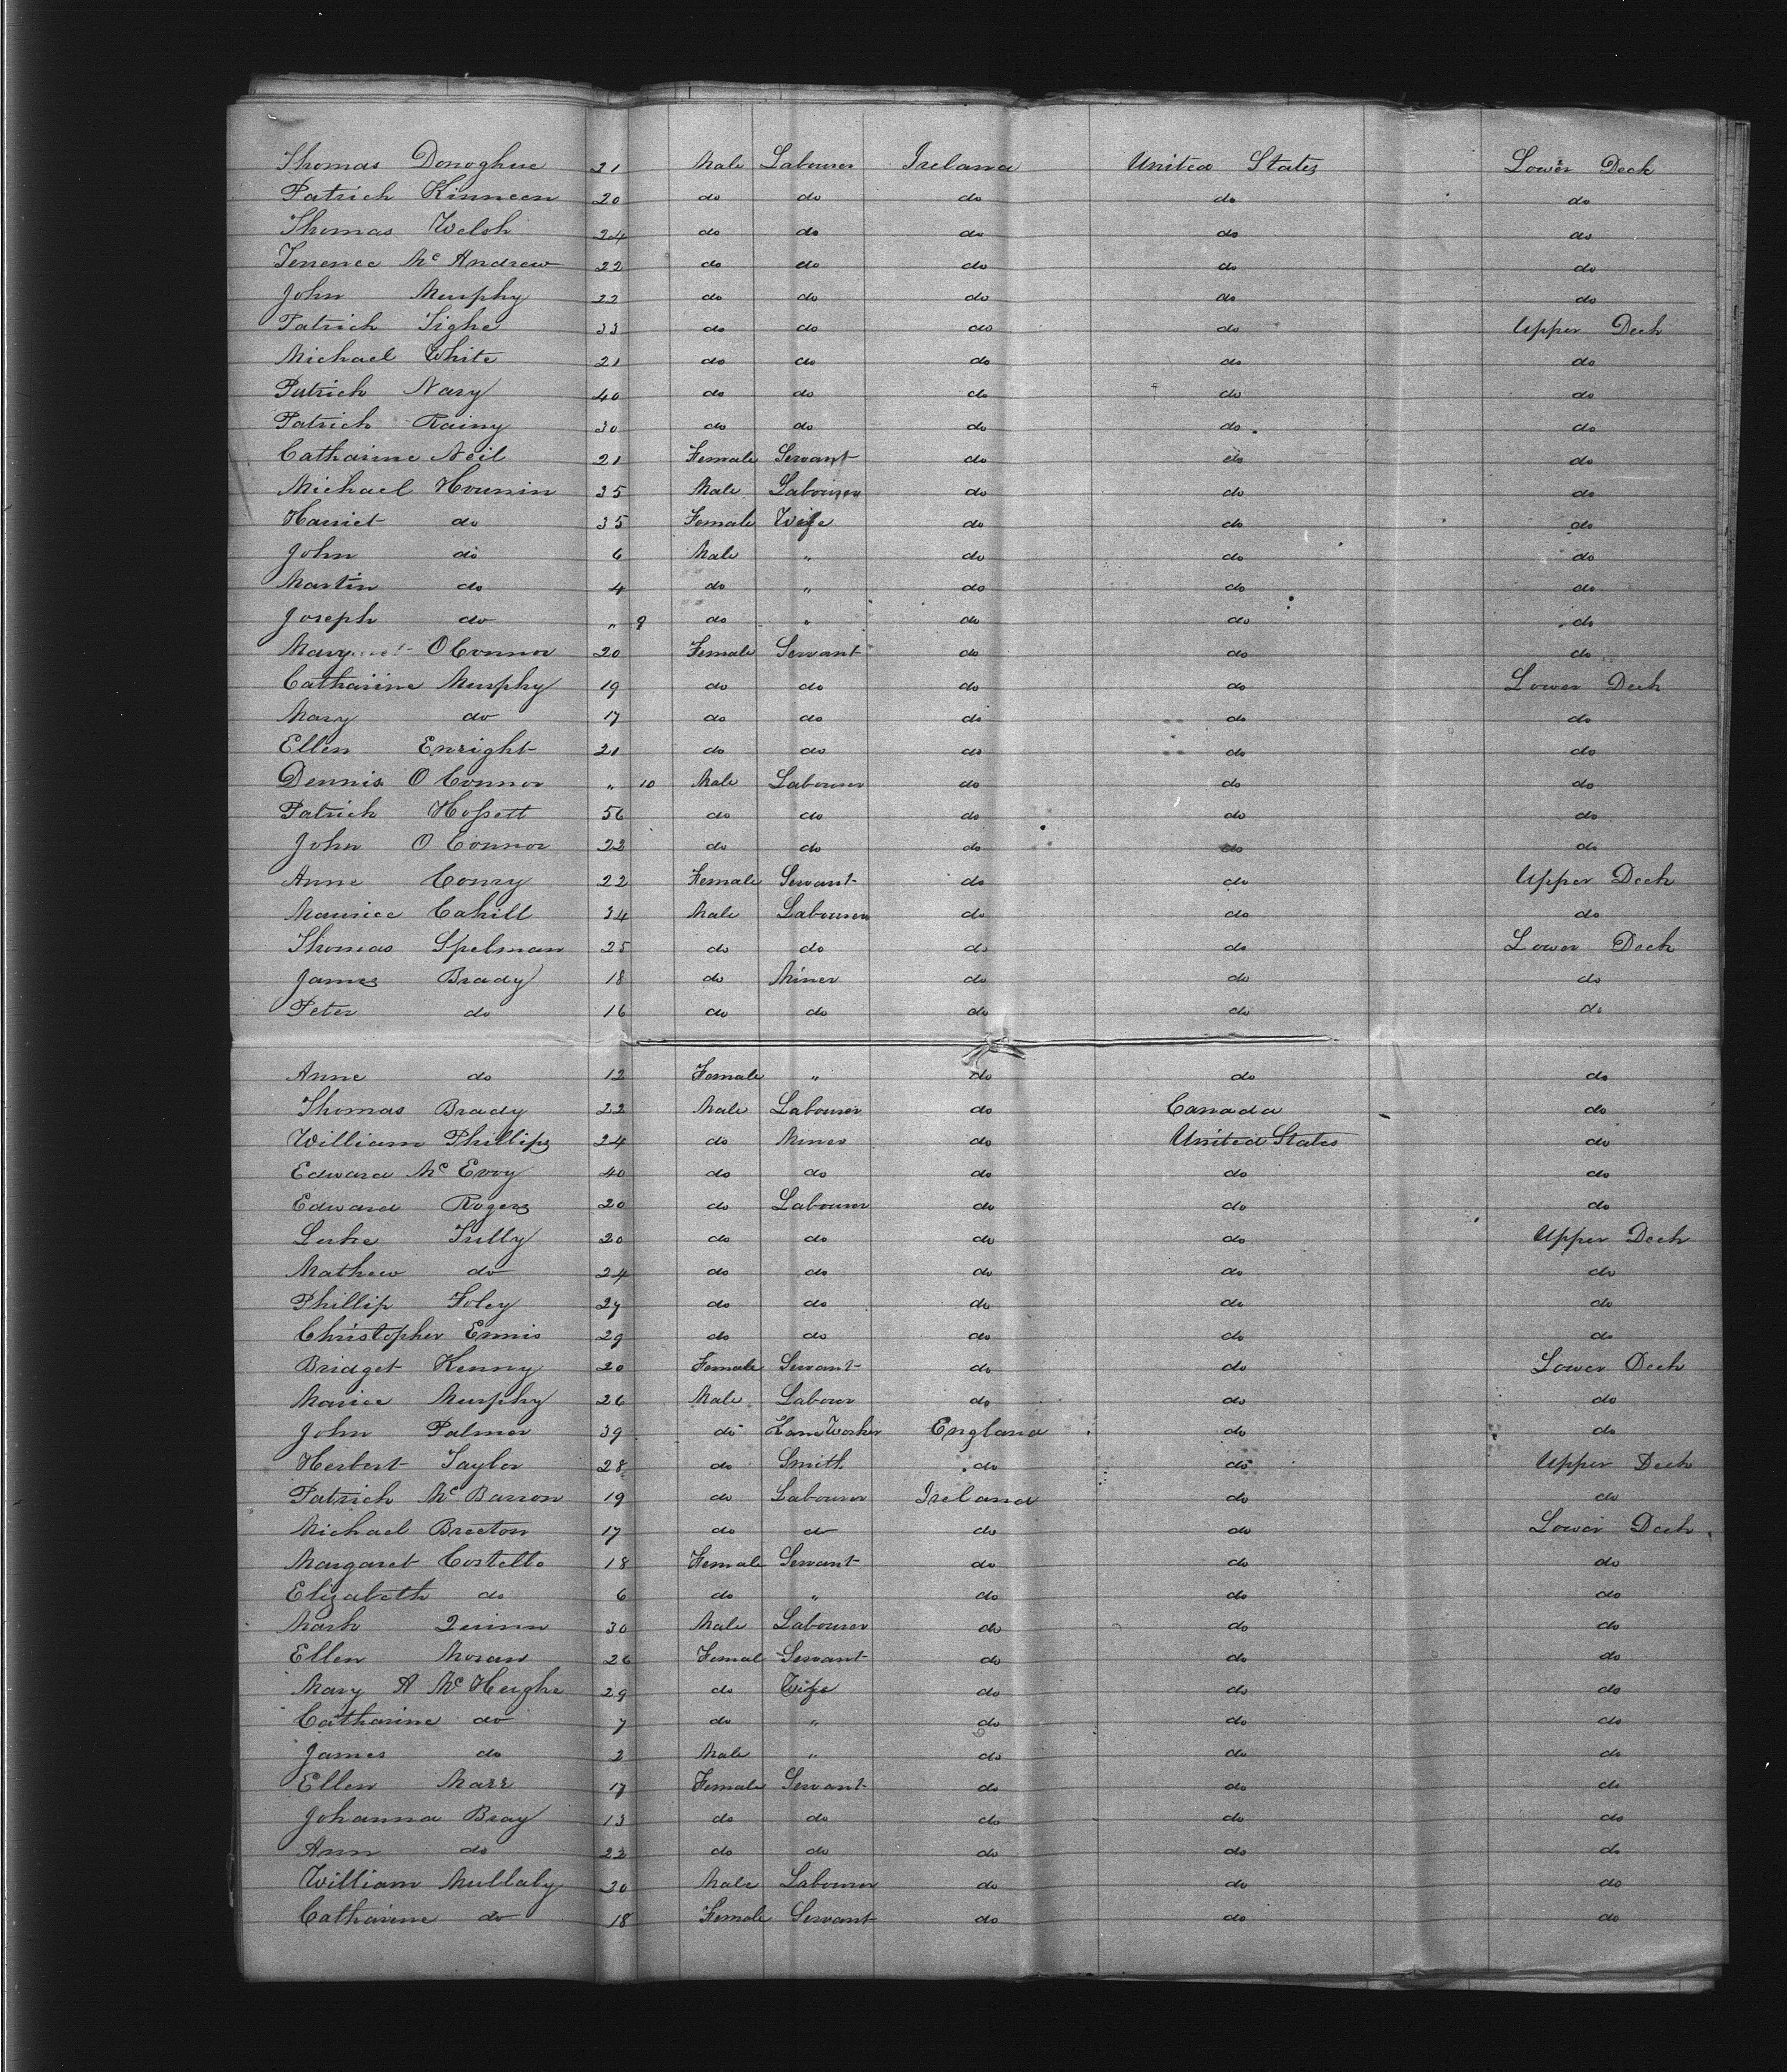 Thomas Donoghue 21 Male Labourer Ireland United States Lower Deck
Patrick Kinneen 20 do do do do do
Thomas Welsh 24 do do do do do
Terrence Mc Andrew 22 do do do do do
John Murphy 22 do do do do do
Patrick Tighe 33 do do do do Upper Deck
Michael White 21 do do do do do
Patrick Nary 40 do do do do do
Patrick Rainy 30 do do do do do
Catharine Neil 21 Female Servant do do do
Michael Hounin 35 Male Labourer do do do
Harriet do 35 Female Wife do do do
John do 6 Male " do do do
Martin do 4 do " do do do
Joseph do " 9 do " do do do
Margaret O Connor 20 Female Servant do do do
Catharine Murphy 19 do do do do Lower Deck
Mary do 17 do do do do do
Ellen Enright 21 do do do do do
Dennis O Connor " 10 Male Labourer do do do
Patrick Hossett 56 do do do do do
John O Connor 22 do do do do do
Anne Conry 22 Female Servant do do Upper Deck
Maurice Cahill 34 Male Labourer do do do
Thomas Spelman 25 do do do do Lower Deck
James Brady 18 do Miner do do do
Peter do 16 do do do do do
Anne do 12 Female " do do do
Thomas Brady 22 Male Labourer do Canada do
William Phillips 24 do Miner do United States do
Edward Mc Evoy 40 do do do do do
Edward Rogers 20 do Labourer do do do
Luke Tully 20 do do do do Upper Deck
Mathew do 24 do do do do do
Phillip Foley 27 do do do do do
Christopher Ennis 29 do do do do do
Bridget Kenny 20 Female Servant do do Lower Deck
Morice Murphy 26 Male Labour do do do
John Palmer 39 do Worker England do do
Herbert Taylor 28 do Smith do do Upper Deck
Patrick Mc Barron 19 do Labourer Ireland do do
Michael Breeton 17 do do do do Lower Deck
Margaret Costello 18 Female Servant do do do
Elizabeth do 6 do " do do do
Mark Quinn 30 Male Labourer do do do
Ellen Moran 26 Femal Servant do do do
Mary A Mc Heighe 29 do Wife do do do
Catharine do 7 do " do do do
James do 2 Male " do do do
Ellen Marr 17 Female Servant do do do
Johanna Bray 13 do do do do do
Ann do 22 do do do do do
William Mullaly 30 Male Labourer do do do
Catharine do 18 Female Servant do do do